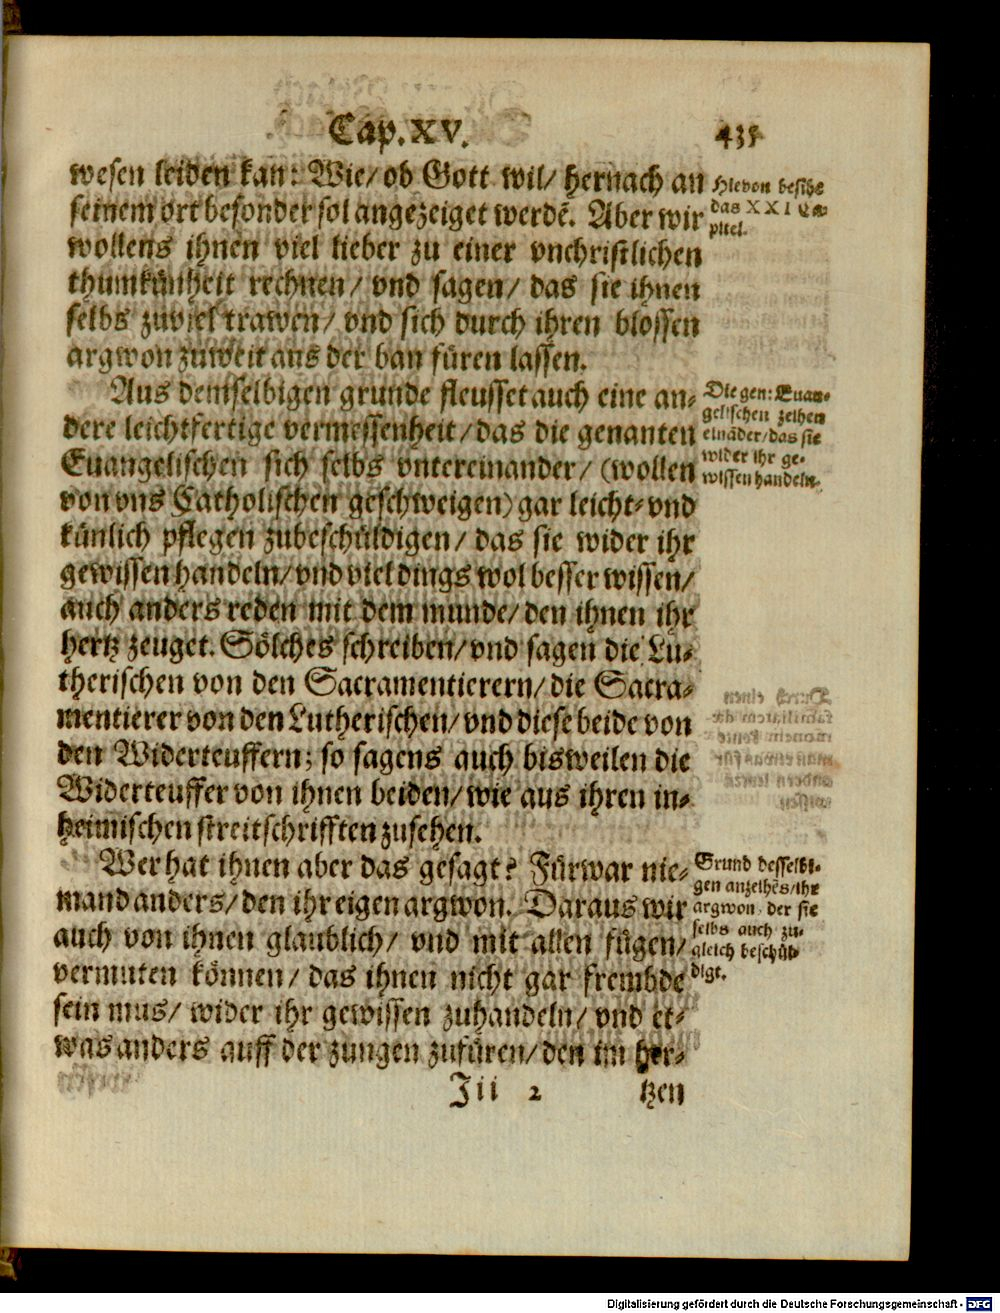 Cap. XV. 435
wesen leiden kan: Wie/ ob Gott wil/ hernach an
seinem ort besonder sol angezeiget werdē. Aber wir
wollens ihnen viel lieber zu einer vnchristlichen
thumkünheit rechnen/ vnd sagen/ das sie ihnen
selbs zuviel trawen/ vnd sich durch ihren blossen
argwon zuweit aus der ban füren lassen.
Hievon besihe
das XXI Ca-
pitel.
Aus demselbigen grunde fleusset auch eine an-
dere leichtfertige vermessenheit/ das die genanten
Euangelischen sich selbs vntereinander/ (wollen
von vns Catholischen geschweigen) gar leicht- vnd
künlich pflegen zubeschüldigen/ das sie wider ihr
gewissen handeln/ vnd viel dings wol besser wissen/
auch anders reden mit dem munde/ den ihnen ihr
hertz zeuget. Sölches schreiben/ vnd sagen die Lu-
therischen von den Sacramentierern/ die Sacra-
mentierer von den Lutherischen/ vnd diese beide von
den Widerteuffern; so sagens auch bisweilen die
Widerteuffer von ihnen beiden/ wie aus ihren in-
heimischen streitschrifften zusehen.
Die gen: Euan-
gelischen zeihen
eināder/ das sie
wider ihr ge-
wissen handeln.
Wer hat ihnen aber das gesagt? Fürwar nie-
mand anders/ den ihr eigen argwon. Daraus wir
auch von ihnen glaublich/ vnd mit allen fügen/
vermuten können/ das ihnen nicht gar frembde
sein mus/ wider ihr gewissen zuhandeln/ vnd et-
was anders auff der zungen zufüren/ den im her-
Grund desselbi-
gen anzeihēs/ ihr
argwon, der sie
selbs auch zu-
gleich beschül-
digt.
Iii 2 tzen
Digitalisierung gefördert durch die Deutsche Forschungsgemeinschaft - DFG